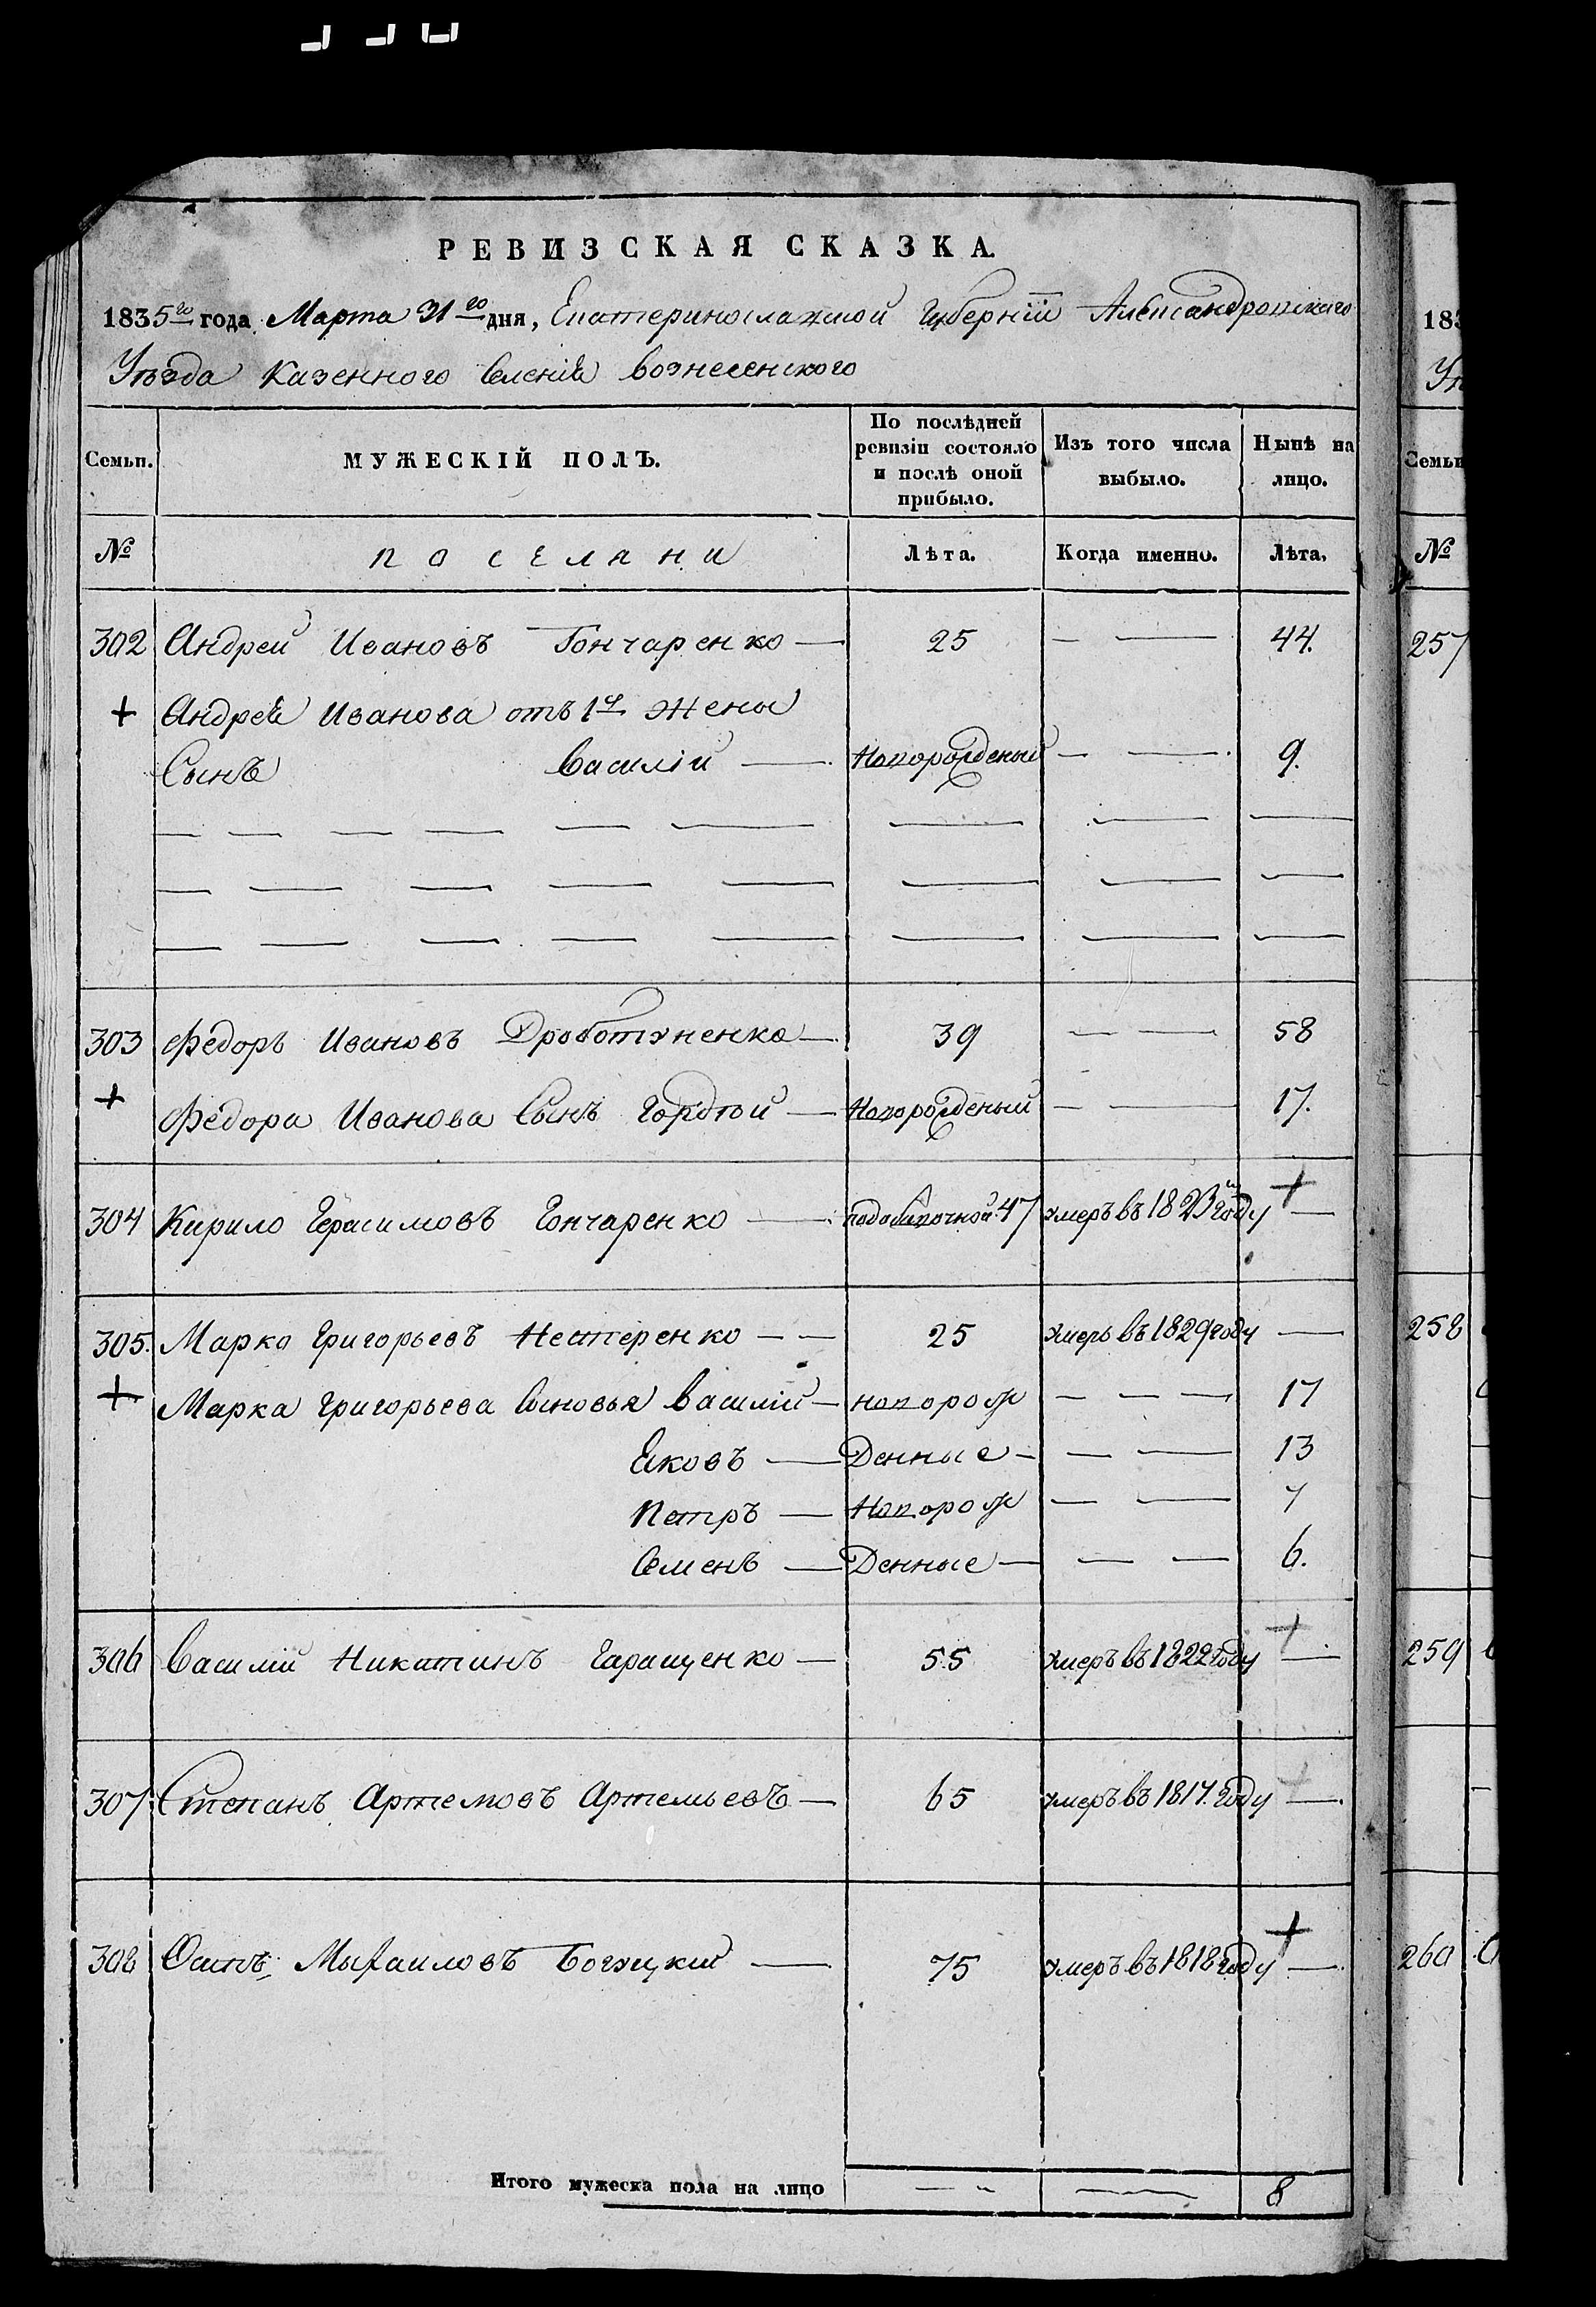 РЕВИЗСКАЯ СКАЗКА.
1835го года Марта 31го дня, Екатеринославской Губерніи Александровскаго
Уѣзда Казенного Селенія Вознесенского
Семьи. МУЖЕСКІЙ ПОЛЪ. По послѣдней ревизіи состояло и послѣ оной прибыло. Изъ того числа выбыло. Нынѣ на лицо.
№ поселяни Лѣта. Когда именно. Лѣта.
302 Андрей Ивановъ Гончаренко — 25 — — 44.
+ Андрея Иванова отъ 1й жены
Сынъ Василій — Новорожденый — — 9.
303 Федоръ Ивановъ Дроботуненко — 39 — — 58
+ Федора Иванова Сынъ Гордѣй — Новорожденый — — 17.
304 Кирило Герасимовъ Гончаренко — 47 умеръ въ 1823м году + —
305. Марко Григорьевъ Нестеренко — — 25 умеръ въ 1829 году —
+ Марка Григорьева Сыновья Василій — новорож — — — 17
Яковъ — Денные — — — 13
Петръ — Новорож — — 7
Семенъ — Денные — — — 6.
306 Василій Никитинъ Гаращенко — 55 умеръ въ 1822 году + —
307 Степанъ Артемовъ Артемьевъ — 65 умеръ въ 1817. году + —
308 Осипъ Михаиловъ Богуцкій — 75 умеръ въ 1818 году + —
Итого мужеска пола на лицо — — 8
183
Ук
Семьи
№
257
258
259
260